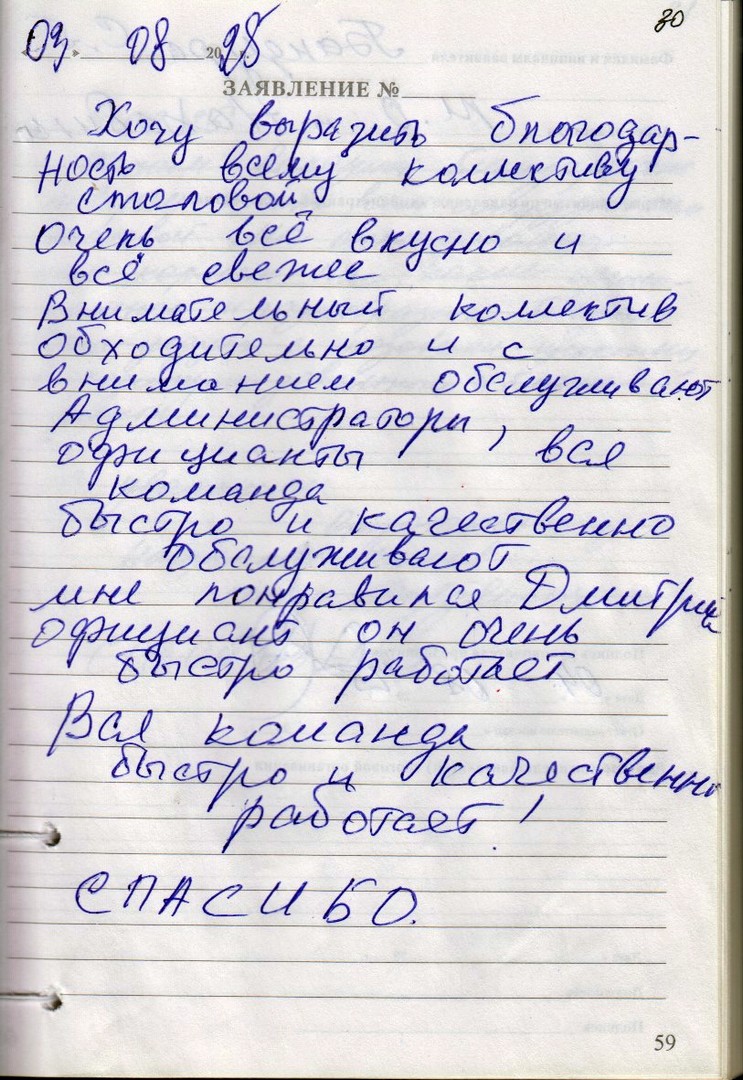 30
03. 08 2025
ЗАЯВЛЕНИЕ №
Хочу выразить благодар-
ность всему коллективу
столовой
Очень всё вкусно и
всё свежее
Внимательный коллектив
обходительно и с
вниманием обслуживают
Администраторы,
официанты вся
команда
быстро и качественно
обслуживают
мне понравился Дмитрий
официант он очень
быстро работает
Вся команда
быстро и качественно
работает!
СПАСИБО.
59